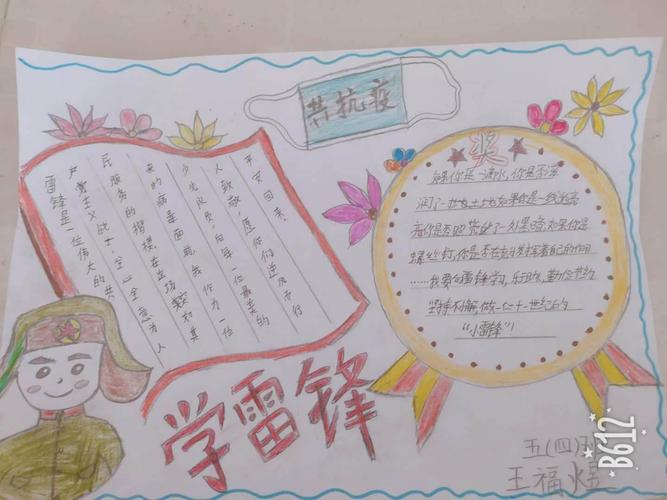 共抗疫
雷锋是一位伟大的共
产党主义战士,全心全意为人
民服务的楷模,在这场突如其
来的病毒面前,我作为一位
少先队员,向每一位最美的
人致敬,愿你们逆风而行
平安回来.
奖
如果你是一滴水,你是否滋
润了一块土地如果你是一线光亮
你是否照亮了一处黑暗如果你是
螺丝钉,你是否在发挥着自己的作用
……我要向雷锋学习,乐于助人,勤俭节约
坚持不懈,做一位二十一世纪的
“小雷锋”!
学雷锋
五(四)班
王福
B612